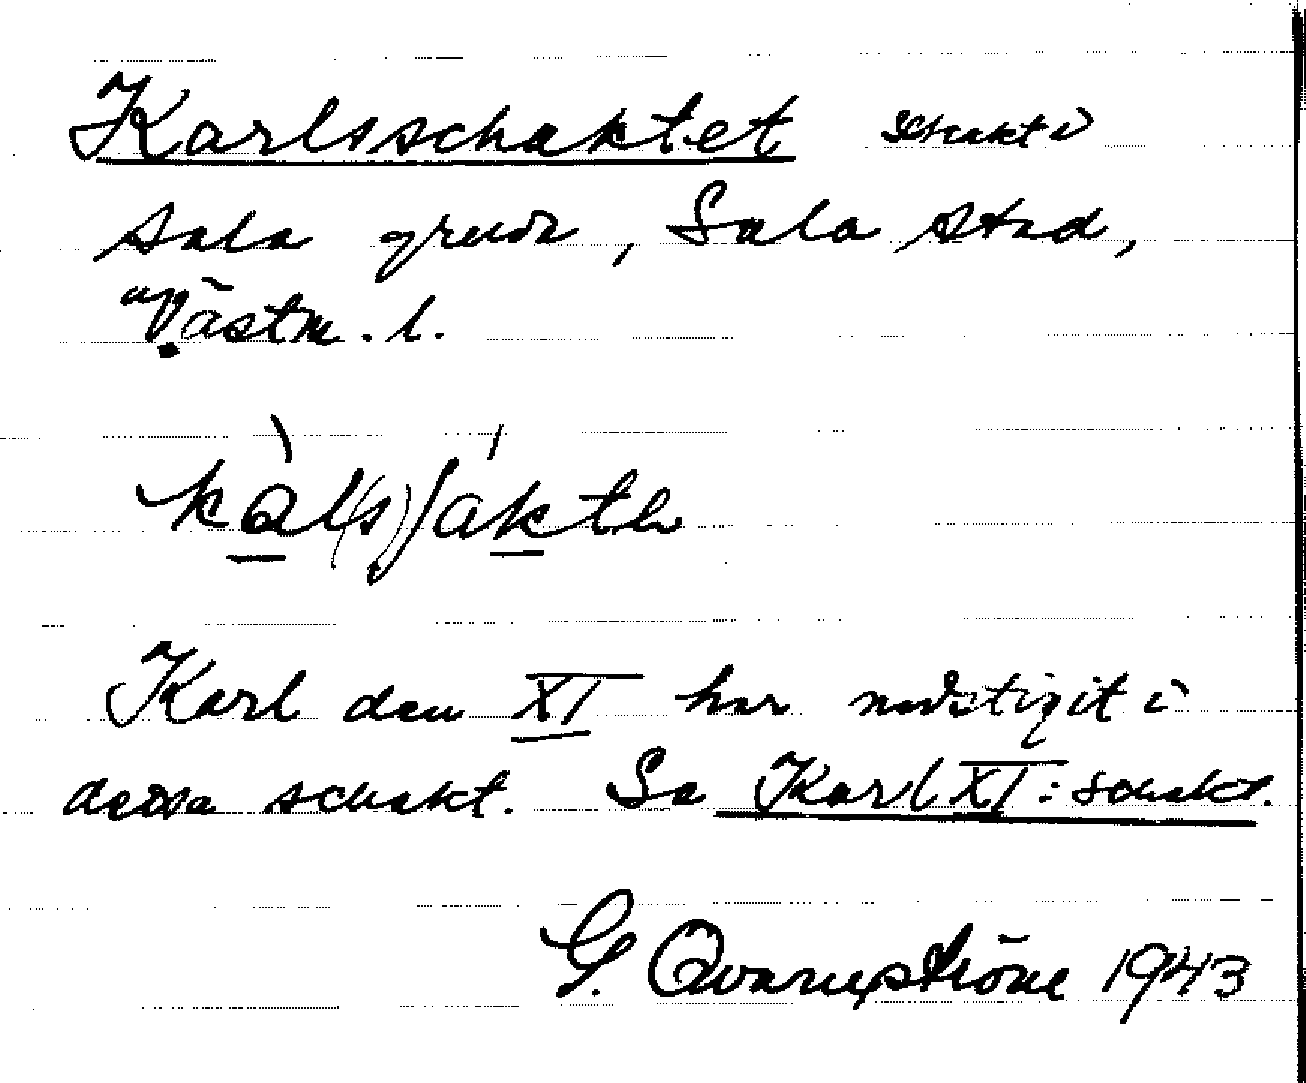 Karlsschaktet schakt i
Sala gruva, Sala stad,
Västm. l.
kàl(s)ʃáktɘ
Karl den XI har nedstigit i
detta schakt. Se Karl XI:s schakt.
G. Qvarnström 1943